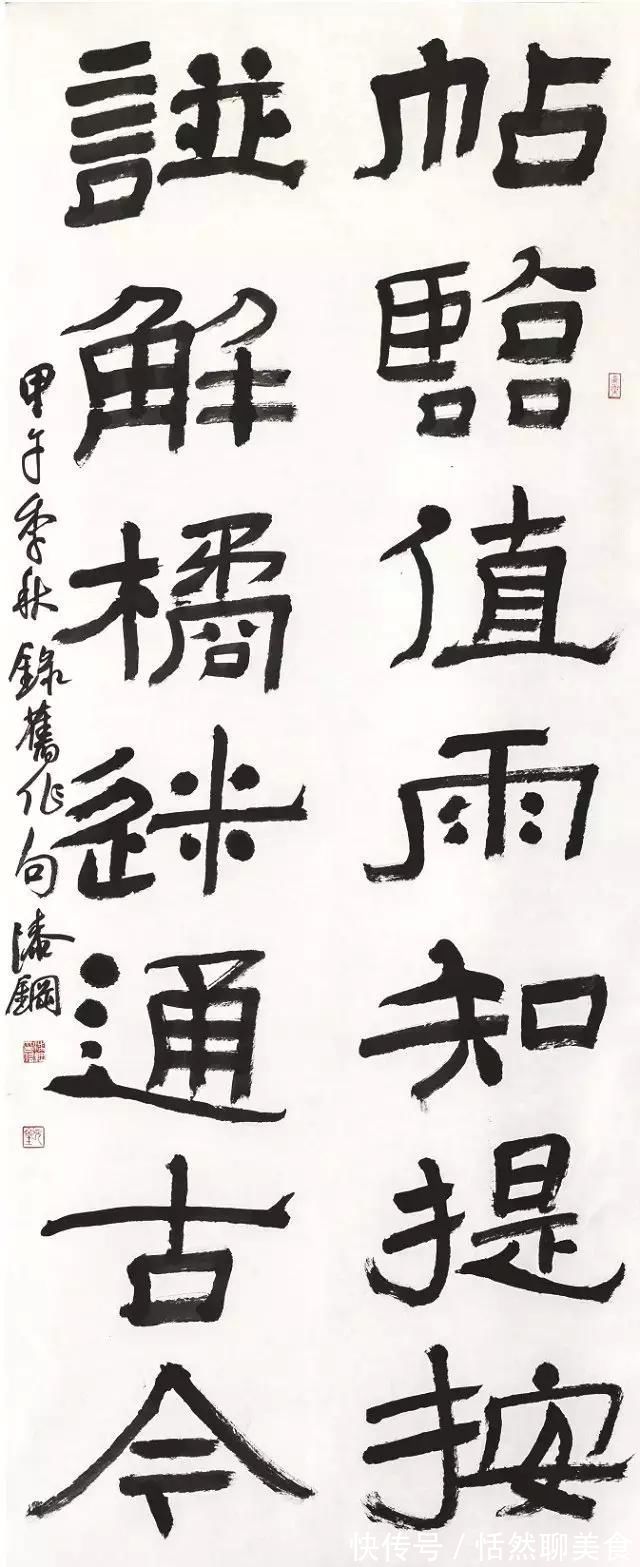 帖臨值雨知提按
譜解橘迷通古今
甲午季秋錄舊作句漆鋼
快传号 / 恬然聊美食